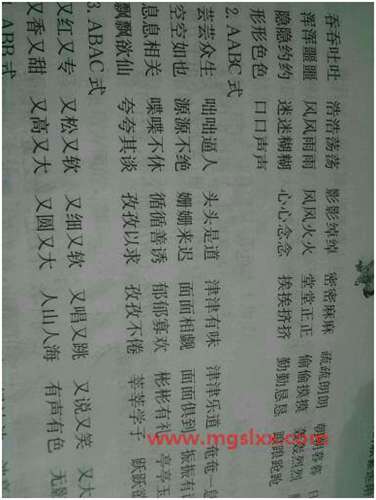 吞吞吐吐 浩浩荡荡 影影绰绰 密密麻麻 疏疏朗朗
浑浑噩噩 风风雨雨 风风火火 堂堂正正 偷偷摸摸 轰轰烈烈
隐隐约约 迷迷糊糊 心心念念 挨挨挤挤 勤勤恳恳
形形色色 口口声声
2. AABC式
芸芸众生 咄咄逼人 头头是道 津津有味 津津乐道 奄奄一
空空如也 源源不绝 姗姗来迟 面面相觑 面面俱到 振振有
息息相关 喋喋不休 循循善诱 郁郁寡欢 彬彬有礼 亭亭玉
飘飘欲仙 夸夸其谈 孜孜以求 孜孜不倦 莘莘学子 跃跃欲
3. ABAC式
又红又专 又松又软 又细又软 又唱又跳 又说又笑 又大
又香又甜 又高又大 又圆又大 人山人海 有声有色 无影
ABB式
www.mgslxx.com